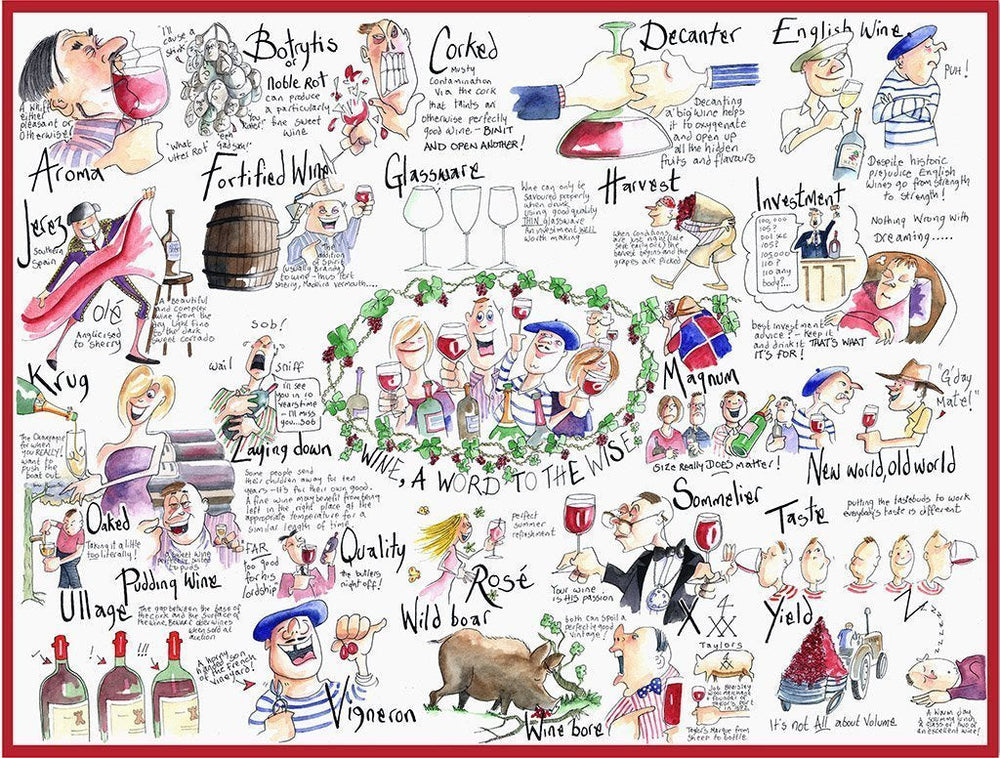 A whiff
either
pleasant or
otherwise!
Aroma
"I'll
cause a
stink"
Botrytis
or
Noble Rot
can produce
a particularly
fine sweet
wine
"What
utter Rot"
Corked
Musty
contamination
via the cork
that taints an
otherwise perfectly
good wine - BIN IT
AND OPEN ANOTHER!
Decanter
Decanting
a big wine helps
it to oxygenate
and open up
all the hidden
fruits and flavours
English Wine
PUH!
Despite historic
prejudice English
Wines go from strength
to strength!
Jerez
Southern
Spain
Olé
Anglicised
to Sherry
A beautiful
and complex
wine from the
day light fino
to the dark
sweet
Fortified Wine
The
addition
of Spirit
(usually Brandy)
to wine - thus Port
Sherry, Madeira, Vermouth....
Glassware
Wine can only be
savoured properly
when drunk
using good quality
THIN glassware
An investment WELL
worth making
Harvest
When conditions
are just right
the
harvest begins and the
grapes are picked
Investment
100,000
105?
105?
105000
110?
110 any
body?...
Nothing Wrong with
Dreaming.....
best investment
advice? - keep it
and drink it THAT'S WHAT
IT'S FOR!
Krug
The Champagne
for when
you REALLY!
want to
push the
boat out
sob!
wail
sniff
I'll see
you in 10
years time
- I'll miss
you...Sob
Laying down
Some people send
their children away for ten
years - it's for their own good.
A fine wine may benefit from being
left in the right place at the
appropriate temperature for a
similar length of time.
WINE, A WORD TO THE WISE
Magnum
Size really DOES matter!
"G'day
Mate!"
New world, old world
Oaked
Taking it a little
too literally!
Pudding Wine
A sweet wine
perfectly suited
to puds
"FAR
too good
for his
lordship"
Quality
the butlers
night off!
perfect
summer
refreshment
Rosé
Sommelier
Your wine
is HIS passion
Taste
putting the tastebuds to work
everybody's taste is different
Ullage
The gap between the base of
the cork and the surface of
the wine. Beware older wines
when sold at
auction
!
!!!
A horny
handed son
of the French
vineyard!
Vigneron
Wild boar
both can spoil a
perfectly good
vintage!
Wine bore
X
Taylors
Taylors Marque from
sheep to bottle
Yield
It's not All about Volume
Z
z z z z z z
A warm day
a glass or two of
an excellent wine!